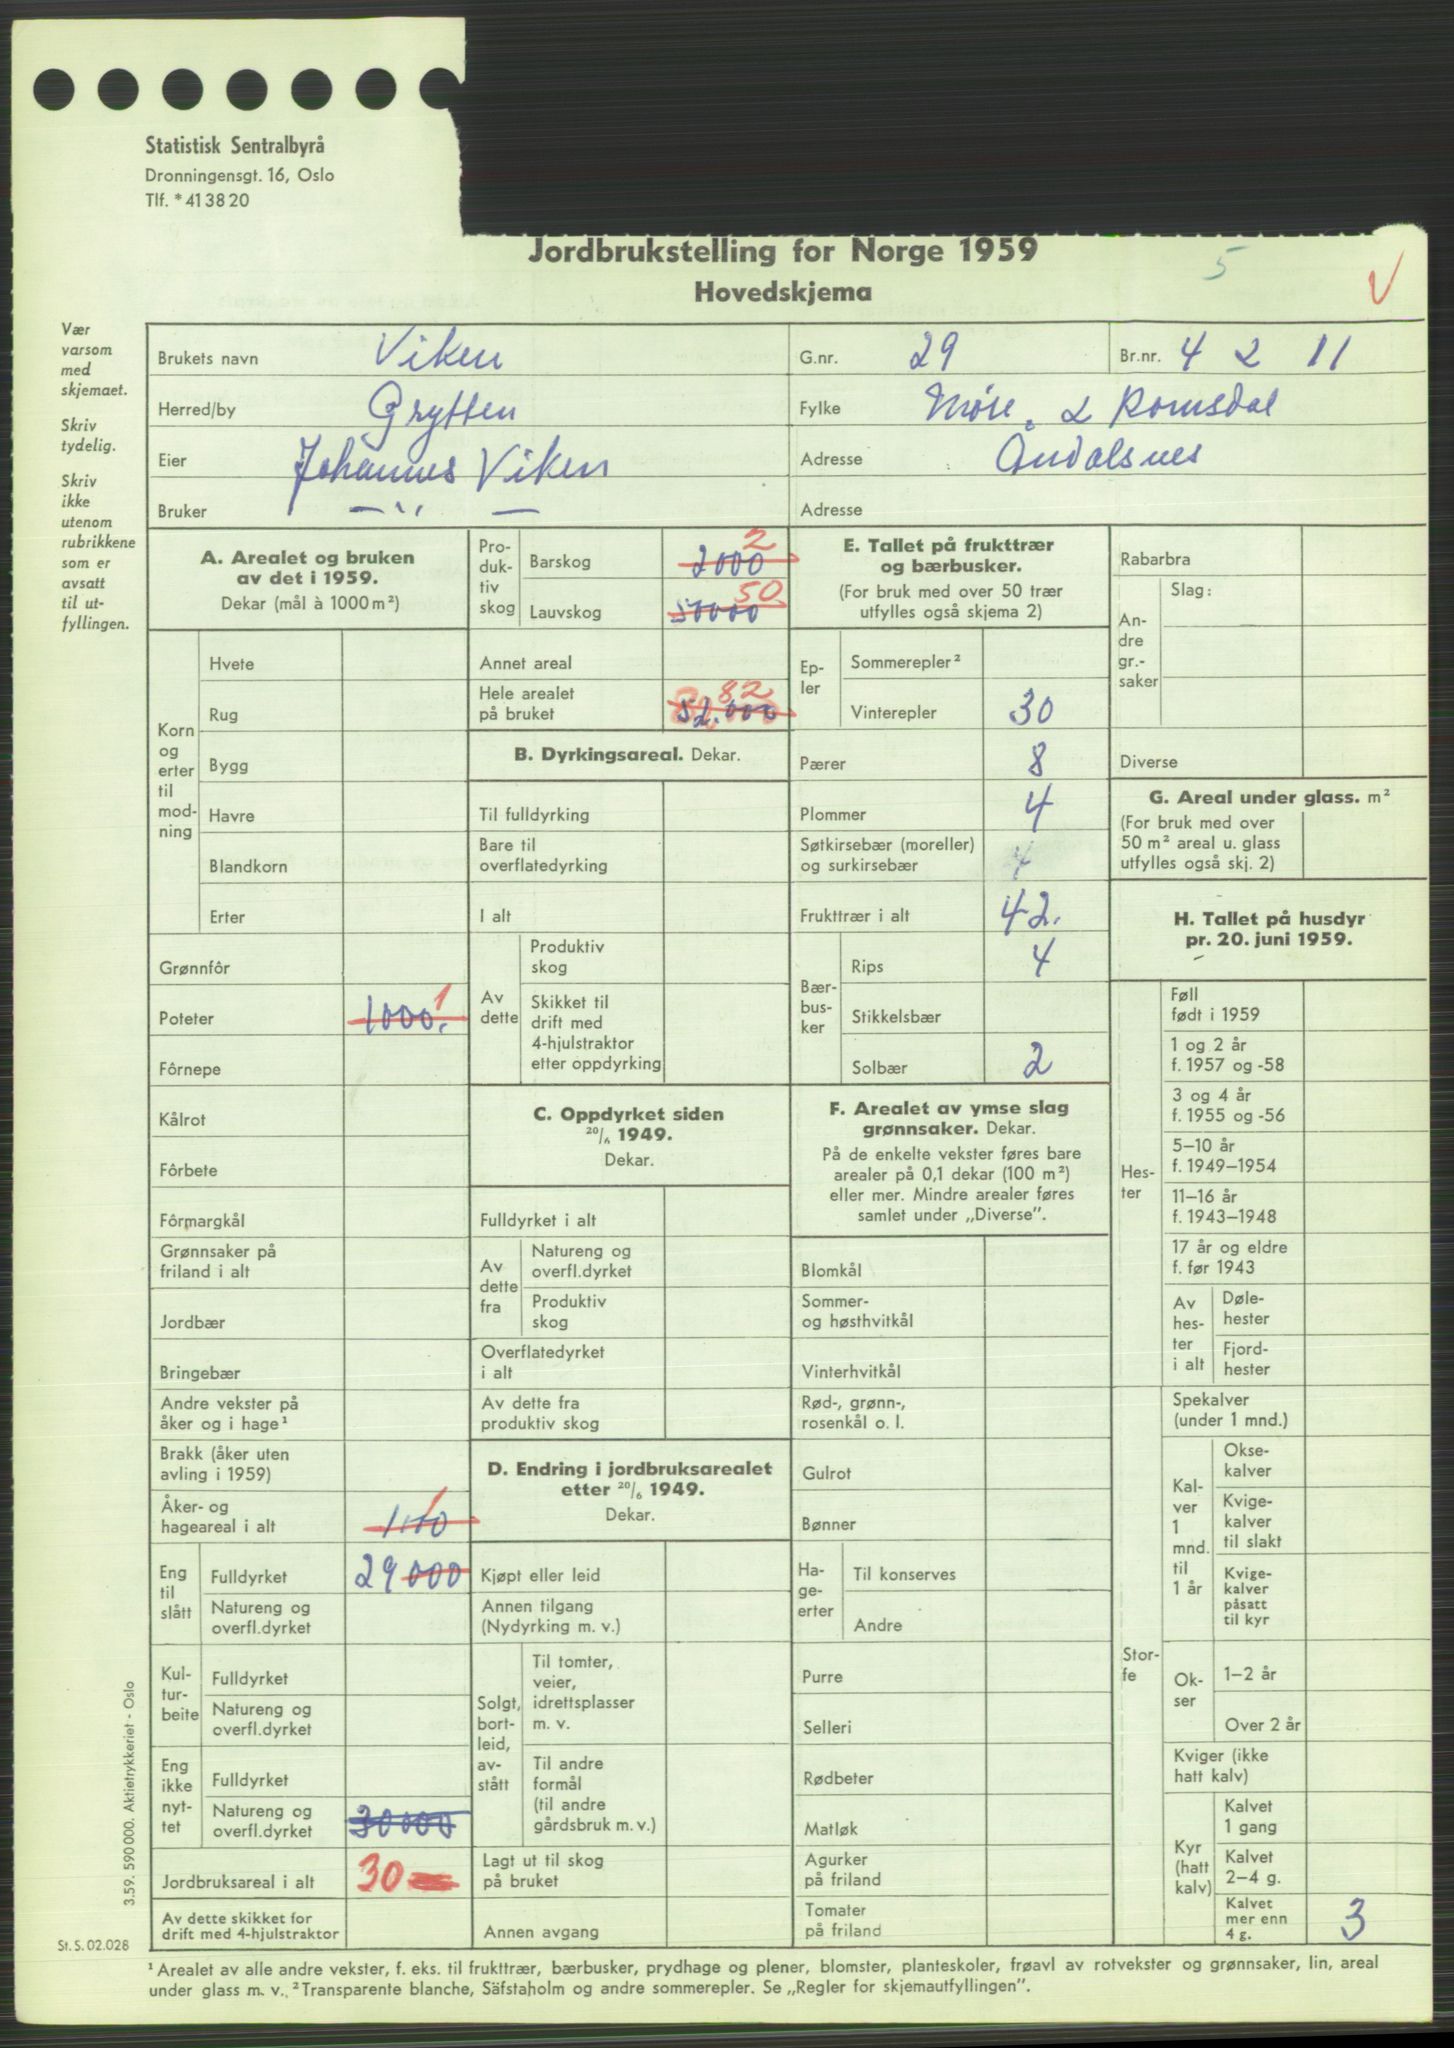 Statistisk Sentralbyrå
Dronningensgt. 16, Oslo
Tlf. *41 38 20
Jordbrukstelling for Norge 1959
Hovedskjema
5
V
Vær
varsom
med
skjemaet.
Skriv
tydelig.
Skriv
ikke
utenom
rubrikkene
som er
avsatt
til ut-
fyllingen.
Brukets navn Viken
G.nr. 29
Br.nr. 4 2 11
Herred/by Grytten
Fylke Møre & Romsdal
Eier Johannes Viken
Adresse Åndalsnes
Bruker — " —
Adresse
A. Arealet og bruken
av det i 1959.
Dekar (mål à 1000 m²)
Korn
og
erter
til
mod-
ning
Hvete
Rug
Bygg
Havre
Blandkorn
Erter
Grønnfôr
Poteter 1000. 1
Fôrnepe
Kålrot
Fôrbete
Fôrmargkål
Grønnsaker på
friland i alt
Jordbær
Bringebær
Andre vekster på
åker og i hage¹
Brakk (åker uten
avling i 1959)
Åker- og
hageareal i alt 1
Eng
til
slått
Fulldyrket 29000
Natureng og
overfl.dyrket
Kul-
tur-
beite
Fulldyrket
Natureng og
overfl.dyrket
Eng
ikke
nyt-
tet
Fulldyrket
Natureng og
overfl.dyrket 30000
Jordbruksareal i alt 30
Av dette skikket for
drift med 4-hjulstraktor
Pro-
duk-
tiv
skog
Barskog 2000 2
Lauvskog 50000 50
Annet areal
Hele arealet
på bruket 52.000 82
B. Dyrkingsareal. Dekar.
Til fulldyrking
Bare til
overflatedyrking
I alt
Av
dette
Produktiv
skog
Skikket til
drift med
4-hjulstraktor
etter oppdyrking
C. Oppdyrket siden
20/6 1949.
Dekar.
Fulldyrket i alt
Av
dette
fra
Natureng og
overfl.dyrket
Produktiv
skog
Overflatedyrket
i alt
Av dette fra
produktiv skog
D. Endring i jordbruksarealet
etter 20/6 1949.
Dekar.
Kjøpt eller leid
Annen tilgang
(Nydyrking m. v.)
Solgt,
bort-
leid,
av-
stått
Til tomter,
veier,
idrettsplasser
m. v.
Til andre
formål
(til andre
gårdsbruk m. v.)
Lagt ut til skog
på bruket
Annen avgang
E. Tallet på frukttrær
og bærbusker.
(For bruk med over 50 trær
utfylles også skjema 2)
Ep-
ler
Sommerepler²
Vinterepler 30
Pærer 8
Plommer 4
Søtkirsebær (moreller)
og surkirsebær 4
Frukttrær i alt 42.
Bær-
bus-
ker
Rips 4
Stikkelsbær
Solbær 2
F. Arealet av ymse slag
grønnsaker. Dekar.
På de enkelte vekster føres bare
arealer på 0,1 dekar (100 m²)
eller mer. Mindre arealer føres
samlet under „Diverse".
Blomkål
Sommer-
og høsthvitkål
Vinterhvitkål
Rød-, grønn-,
rosenkål o. l.
Gulrot
Bønner
Ha-
ge-
erter
Til konserves
Andre
Purre
Selleri
Rødbeter
Matløk
Agurker
på friland
Tomater
på friland
Rabarbra
An-
dre
gr.-
saker
Slag:
Diverse
G. Areal under glass. m²
(For bruk med over
50 m² areal u. glass
utfylles også skj. 2)
H. Tallet på husdyr
pr. 20. juni 1959.
Hes-
ter
Føll
født i 1959
1 og 2 år
f. 1957 og -58
3 og 4 år
f. 1955 og -56
5–10 år
f. 1949–1954
11–16 år
f. 1943–1948
17 år og eldre
f. før 1943
Av
hes-
ter
i alt
Døle-
hester
Fjord-
hester
Stor-
fe
Spekalver
(under 1 mnd.)
Kal-
ver
1
mnd.
til
1 år
Okse-
kalver
Kvige-
kalver
til slakt
Kvige-
kalver
påsatt
til kyr
Ok-
ser
1–2 år
Over 2 år
Kviger (ikke
hatt kalv)
Kyr
(hatt
kalv)
Kalvet
1 gang
Kalvet
2–4 g.
Kalvet
mer enn
4 g. 3
3.59. 590 000. Aktietrykkeriet - Oslo
St. S. 02.028
¹ Arealet av alle andre vekster, f. eks. til frukttrær, bærbusker, prydhage og plener, blomster, planteskoler, frøavl av rotvekster og grønnsaker, lin, areal
under glass m. v. ² Transparente blanche, Säfstaholm og andre sommerepler. Se „Regler for skjemautfyllingen".